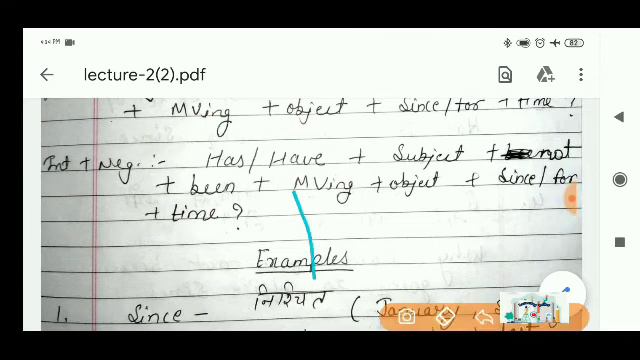 4:14 PM
82
lecture-2(2).pdf
+ MVing + object + Since/for + time?
Int + Neg. :- Has/Have + Subject + not
+ been + MVing + object + Since/for
+ time?
Examples
1. Since - निश्चित (January,